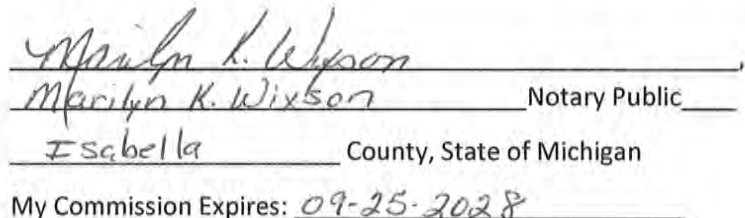 Marilyn K. Wixson,
Marilyn K. Wixson Notary Public
Isabella County, State of Michigan
My Commission Expires: 09-25-2028